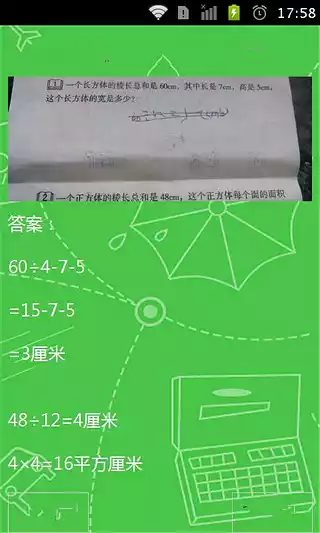 17:58
1 一个长方体的棱长总和是 60cm，其中长是 7cm，高是 5cm，
这个长方体的宽是多少？
2 一个正方体的棱长总和是 48cm，这个正方体每个面的面积
答案：
60÷4-7-5
=15-7-5
=3厘米
48÷12=4厘米
4×4=16平方厘米